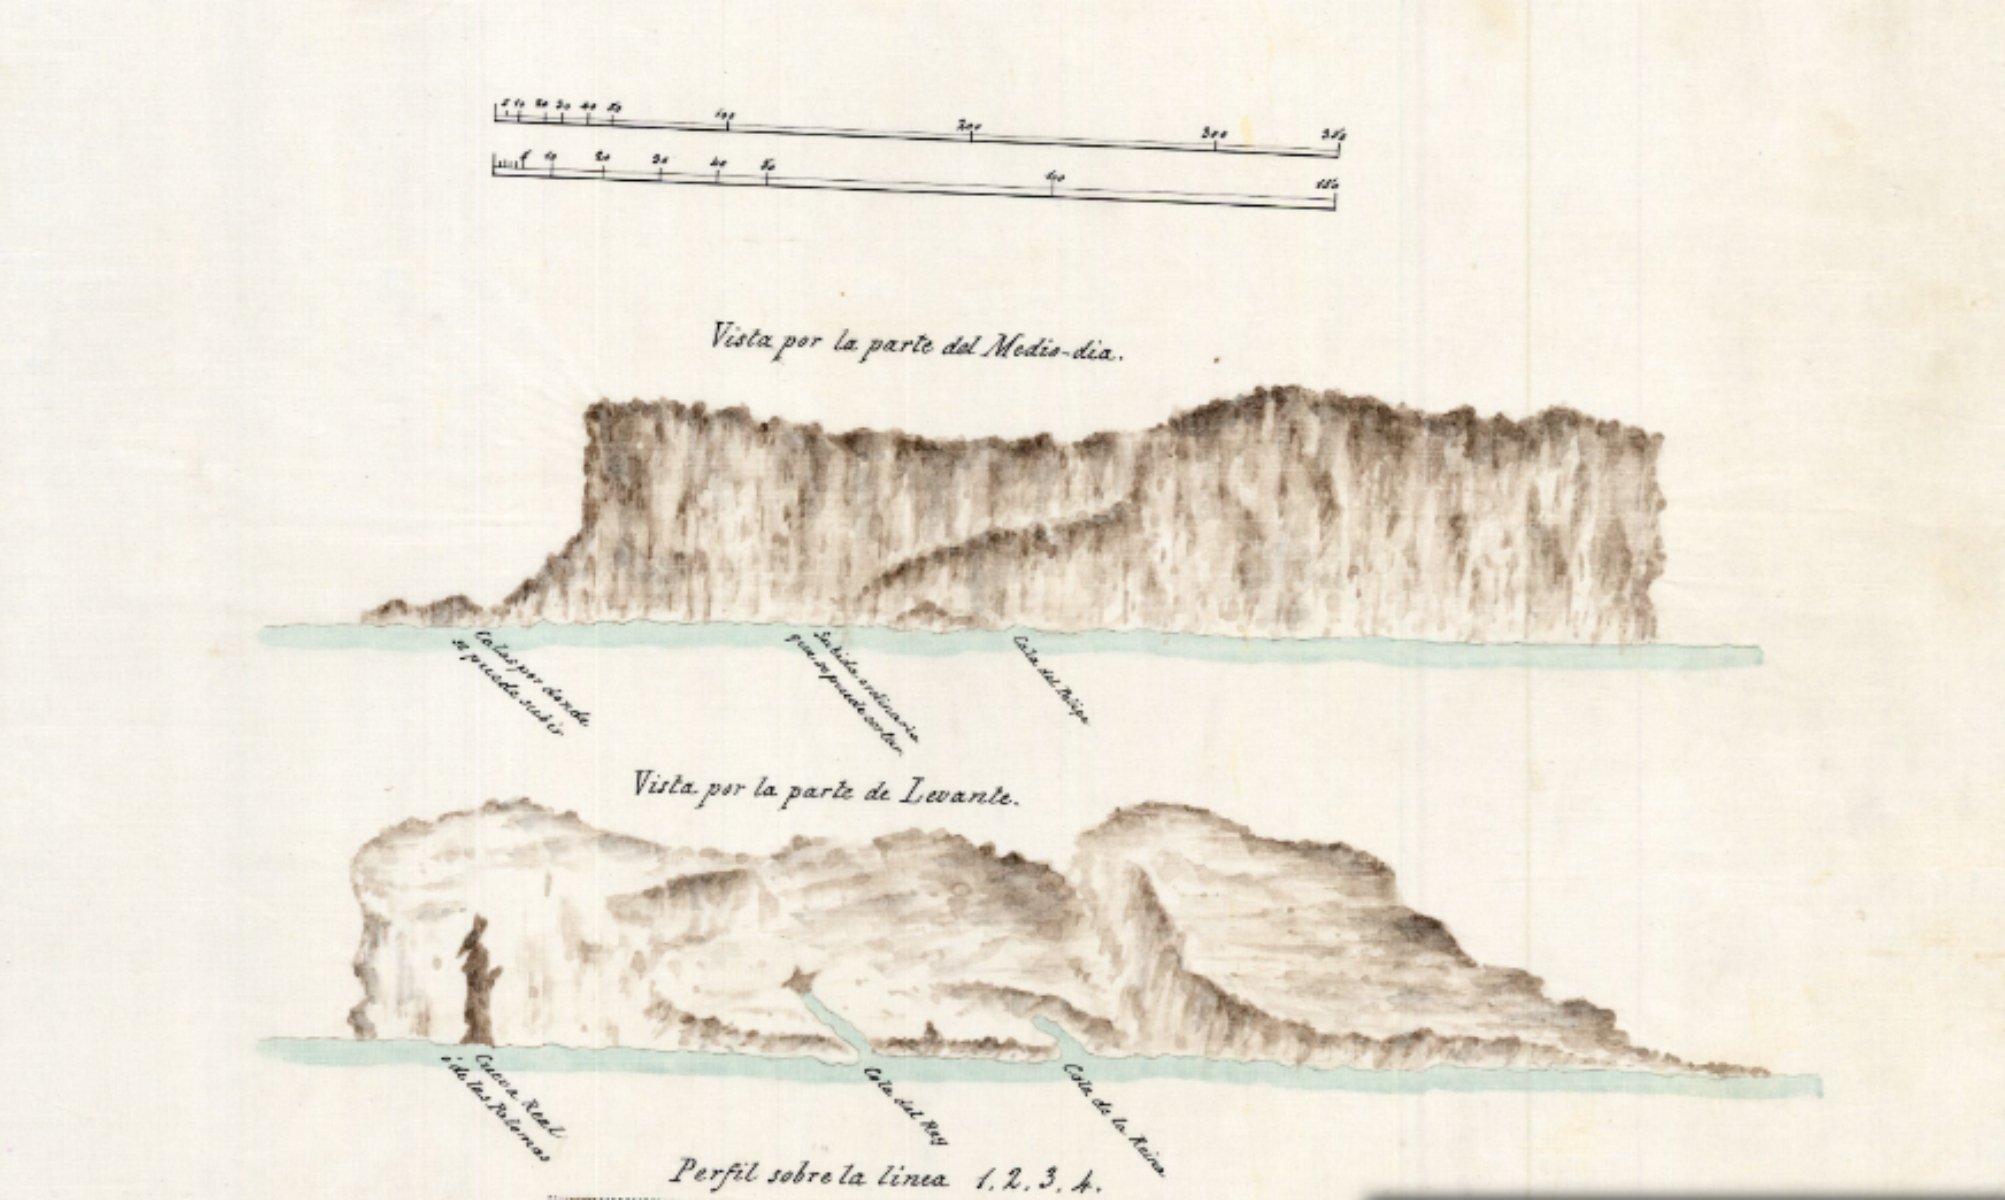 5 10 20 30 40 50 100 200 300 350
5 10 20 30 40 50 100 150
Vista por la parte del Medio-dia.
Calas por donde
se puede subir
Subida ordinaria
que se puede cortar
Cala del
Vista por la parte de Levante.
Cueva Real
ó de las Palomas
Cala del Rey
Cala de la Reina
Perfil sobre la linea 1. 2. 3. 4.